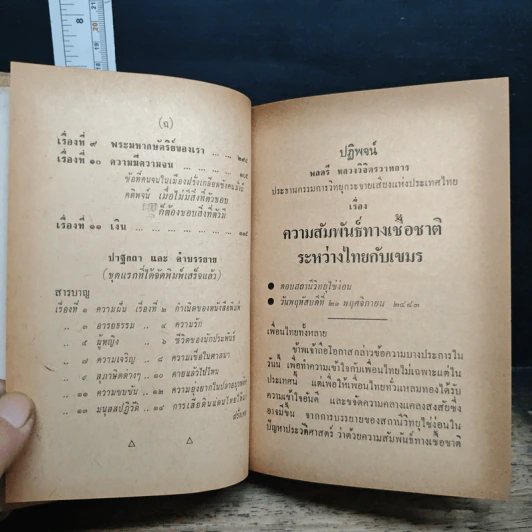 (ฆ)
เรื่องที่ ๙ พระมหากษัตริย์ของเรา ... ... ๒๙๔
เรื่องที่ ๑๐ ความมีความจน ... ... ... ...
ข้อที่คนจนในเมืองฝรั่งเกลียดชังคนมั่งมี
คติพจน์ เมื่อไม่มีสิ่งที่ตัวชอบ
ก็ต้องชอบสิ่งที่ตัวมี
เรื่องที่ ๑๑ เงิน ... ... ... ... ... ...
ปาฐกถา และ คำบรรยาย
(ชุดแรกที่ได้จัดพิมพ์เสร็จแล้ว)
สารบาญ
เรื่องที่ ๑ ความฝัน เรื่องที่ ๒ กำเนิดของหนังสือพิมพ์
,, ๓ อารยธรรม ,, ๔ ความรัก
,, ๕ ผู้หญิง ,, ๖ ชีวิตของนักประพันธ์
,, ๗ ความเจริญ ,, ๘ ความเชื่อในศาสนา
,, ๙ สุภาษิตต่างๆ ,, ๑๐ ตายแล้วไปไหน
,, ๑๑ ความขบขัน ,, ๑๒ ความยุ่งยากใน
,, ๑๓ มนุสสปฏิวัติ ,, ๑๔ การเสียดินแดนไทยให้แก่
ฝรั่งเศส
ปฏิพจน์
พลตรี หลวงวิจิตรวาทการ
ประธานกรรมการวิทยุกระจายเสียงแห่งประเทศไทย
เรื่อง
ความสัมพันธ์ทางเชื้อชาติ
ระหว่างไทยกับเขมร
● ตอบสถานีวิทยุไซ่ง่อน
● วันพฤหัสบดีที่ ๒๑ พฤศจิกายน ๒๔๘๓
เพื่อนไทยทั้งหลาย
ข้าพเจ้าถือโอกาสกล่าวข้อความบางประการใน
วันนี้ เพื่อทำความเข้าใจกับเพื่อนไทยไม่เฉพาะแต่ใน
ประเทศนี้ แต่เพื่อให้เพื่อนไทยทั้งแหลมทองได้รับ
ความเข้าใจอันดี และขจัดความคลางแคลงสงสัยซึ่ง
อาจมีขึ้น จากการบรรยายของสถานีวิทยุไซ่ง่อนใน
ปัญหาประวัติศาสตร์ ว่าด้วยความสัมพันธ์ทางเชื้อชาติ